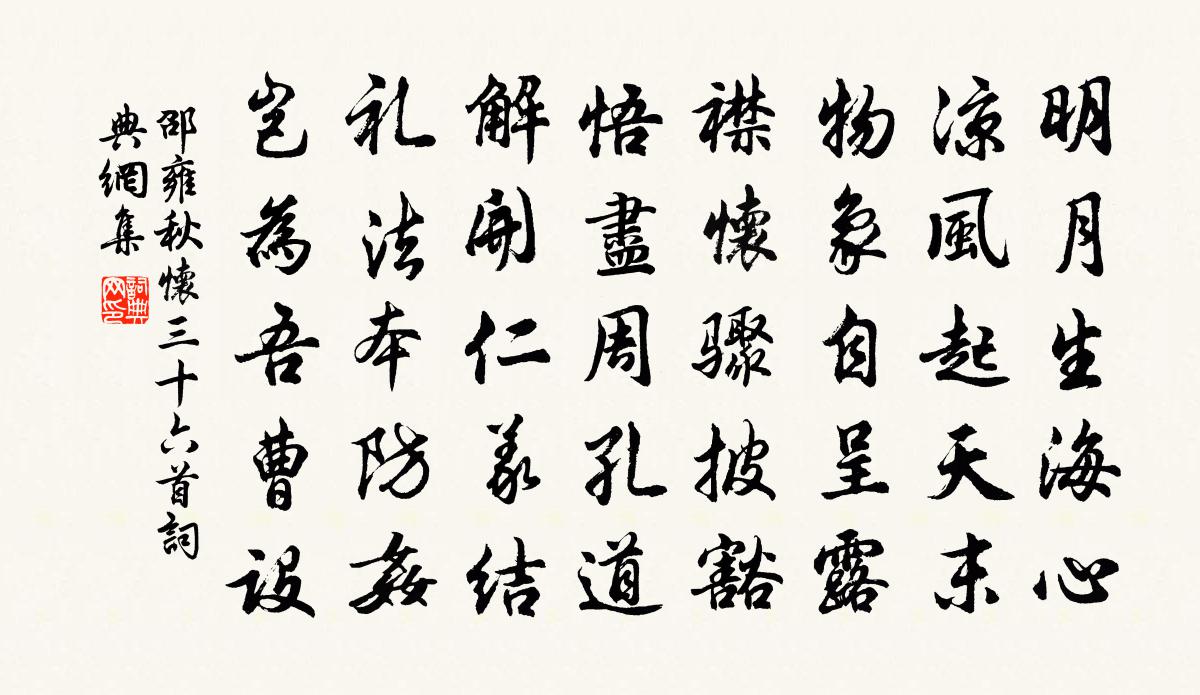 明月生海心
涼風起天末
物象自呈露
襟懷骤披豁
悟盡周孔道
解開仁義結
礼法本防姦
豈為吾曹設
邵雍秋懷三十六首詞
典網集
詞典
网印